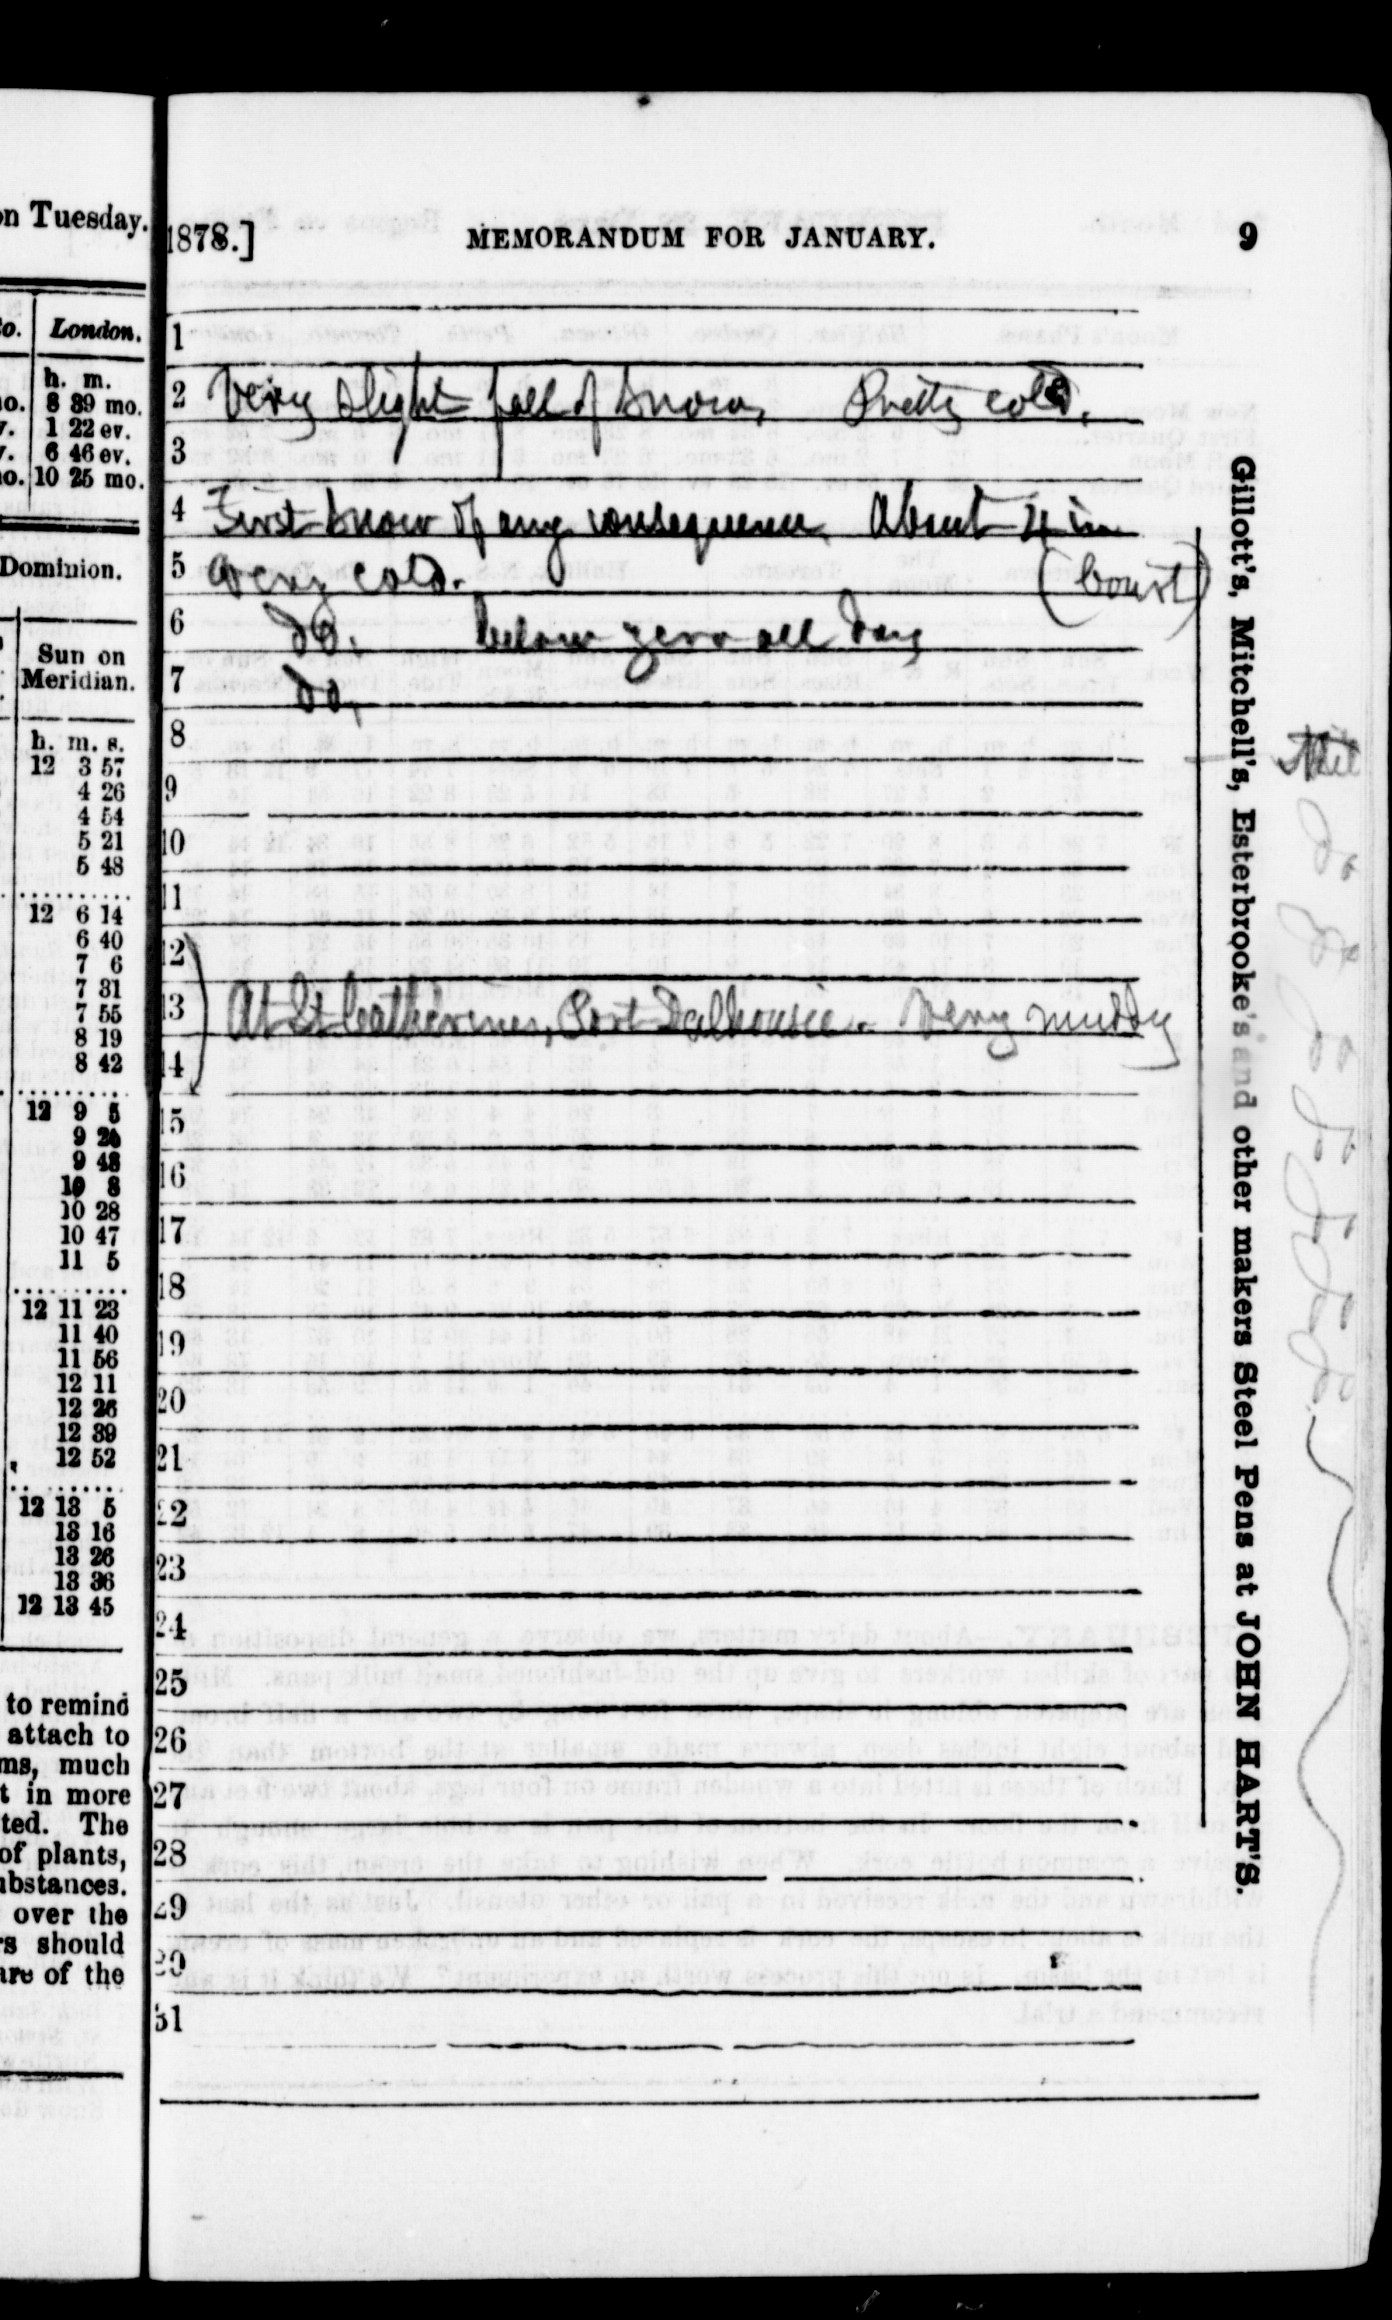 on Tuesday.
London.
h. m.
8 39 mo.
1 22 ev.
6 46 ev.
10 25 mo.
Dominion.
Sun on
Meridian.
h. m. s.
12 3 57
4 26
4 54
5 21
5 48
12 6 14
6 40
7 6
7 31
7 55
8 19
8 42
12 9 5
9 26
9 48
10 8
10 28
10 47
11 5
12 11 23
11 40
11 56
12 11
12 26
12 39
12 52
12 13 5
13 16
13 26
13 36
12 13 45
to remind
attach to
ms, much
t in more
ted. The
of plants,
bstances.
over the
rs should
are of the
1878.] MEMORANDUM FOR JANUARY. 9
1
2 Very slight fall of snow. Pretty cold.
3
4 First snow of any consequence. About 4 in
5 Very cold. (Court)
6 do. below zero all day
7 do.
8
9
10
11
12
13 At St Catherines, Port Dalhousie. Very muddy
14
15
16
17
18
19
20
21
22
23
24
25
26
27
28
29
30
31
Gillott's, Mitchell's, Esterbrooke's and other makers Steel Pens at JOHN HART'S.